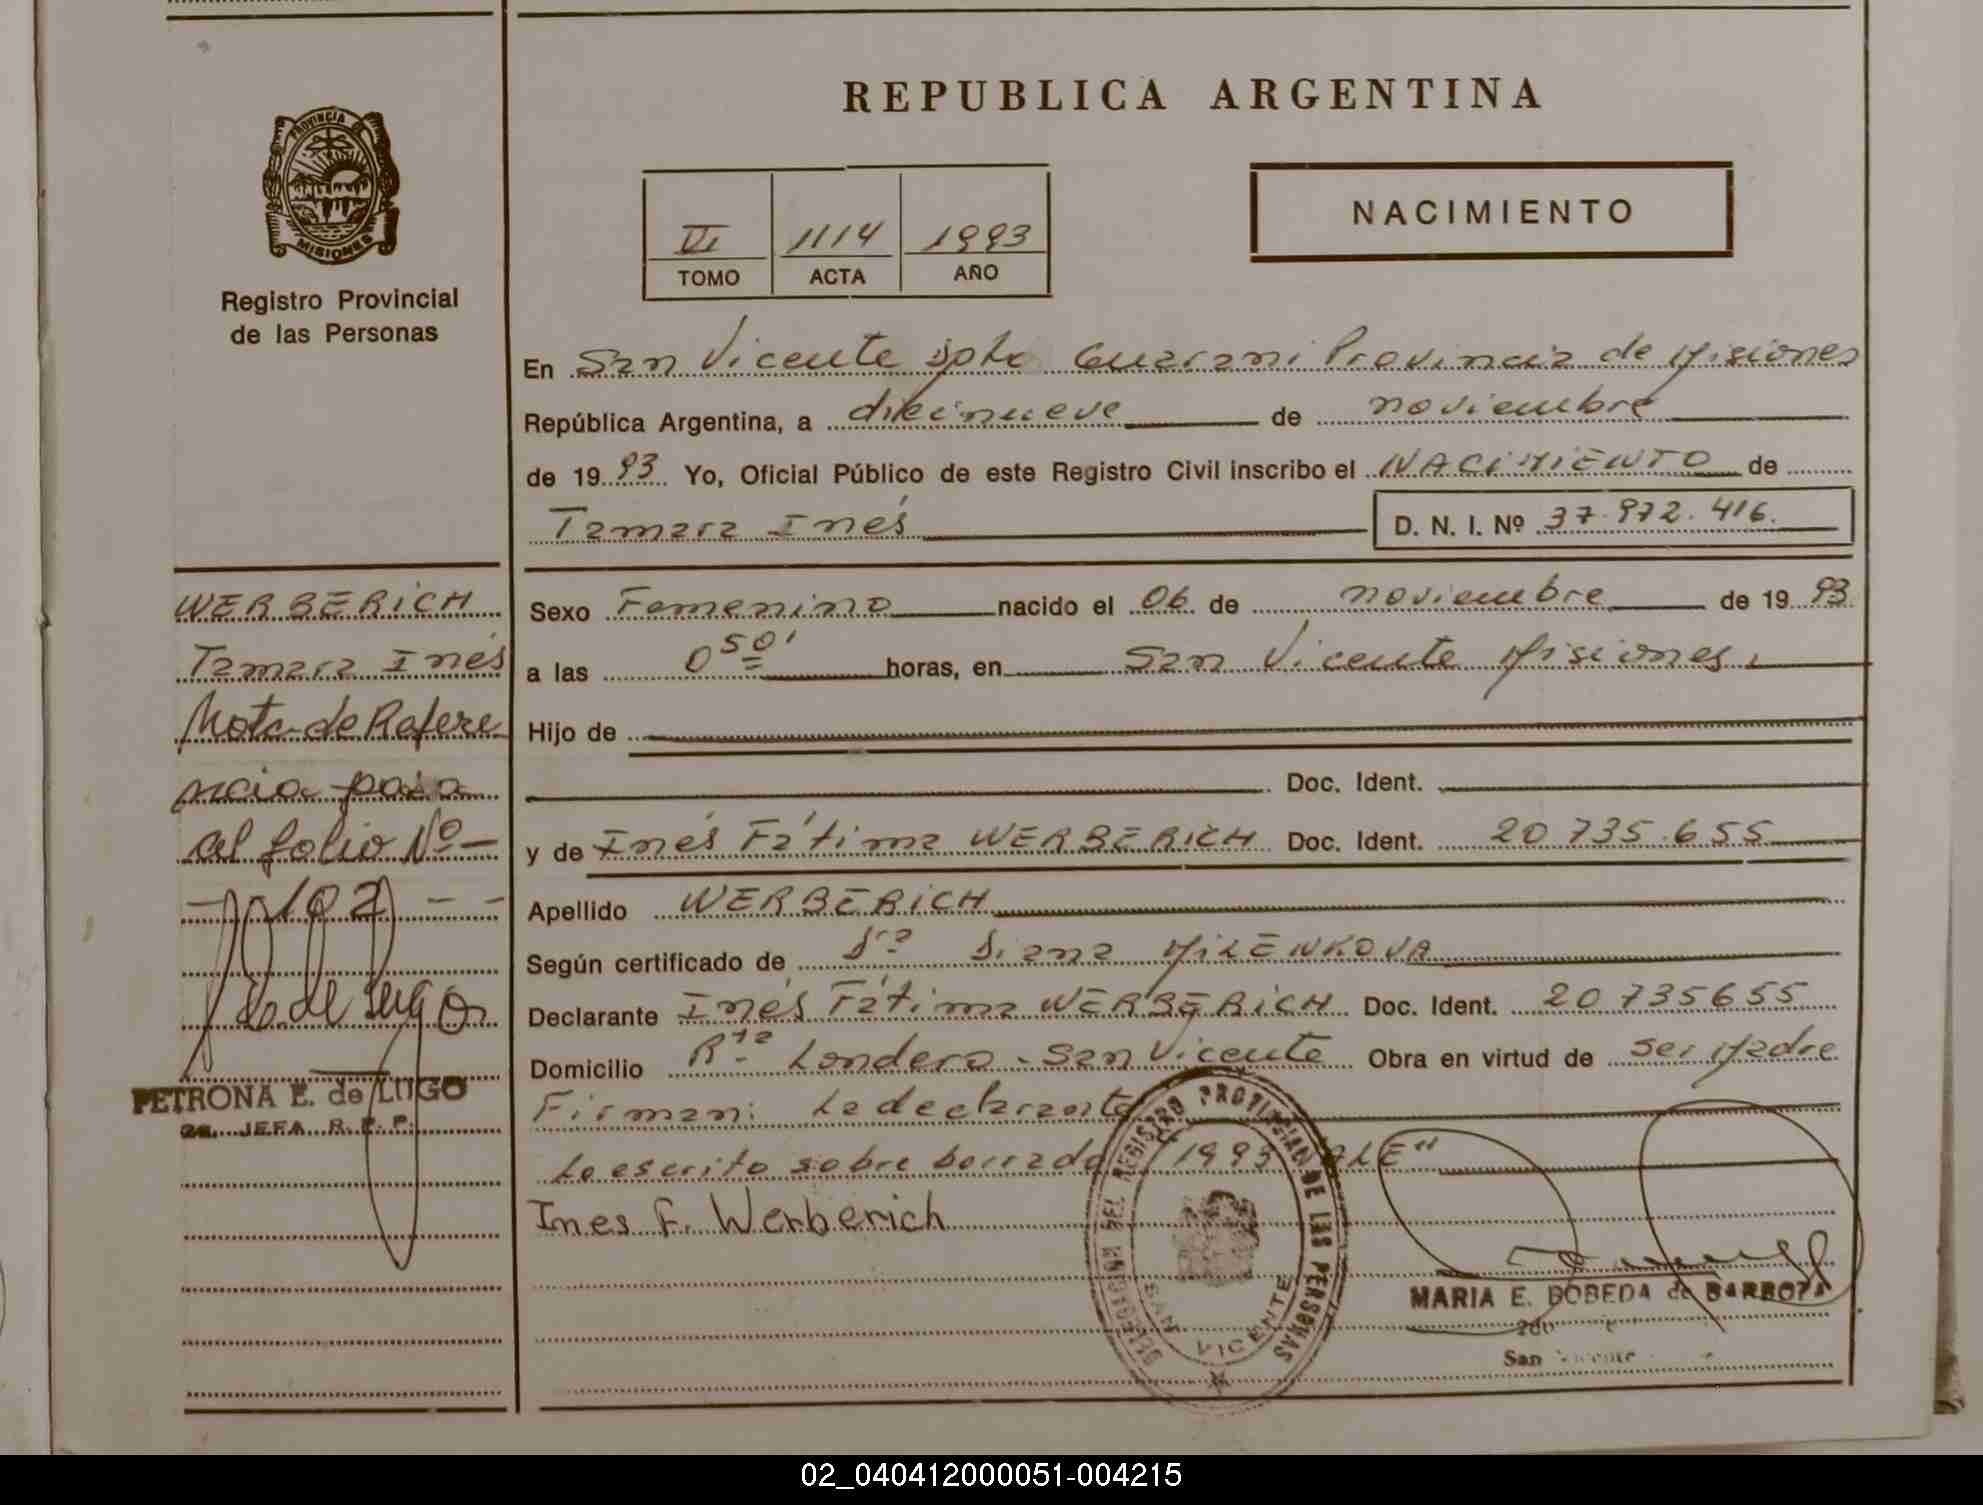 REPUBLICA ARGENTINA
PROVINCIA DE
MISIONES
Registro Provincial
de las Personas
VI 1114 1993
TOMO ACTA AÑO
NACIMIENTO
En San Vicente Dpto Guarani Provincia de Misiones
República Argentina, a diecinueve de noviembre
de 19 93 Yo, Oficial Público de este Registro Civil inscribo el NACIMIENTO de
Tamara Inés D. N. I. Nº 37.972.416.
WERBERICH
Tamara Inés
Nota de Refere
ncia pasa
al folio Nº -
- 102 - -
PETRONA E. de LUGO
2a. JEFA R. P. P.
Sexo Femenino nacido el 06 de noviembre de 19 93
a las 0 50' horas, en San Vicente Misiones.
Hijo de
Doc. Ident.
y de Inés Fátima WERBERICH Doc. Ident. 20.735.655
Apellido WERBERICH
Según certificado de Dra Diana MILENKOVA
Declarante Inés Fátima WERBERICH Doc. Ident. 20 735655
Domicilio Rta Londero - San Vicente Obra en virtud de ser Madre
Firman: La declarante
Lo escrito sobre borrado 1993 VALE"
Ines F. Werberich
DELEGACION DEL REGISTRO PROVINCIAL DE LAS PERSONAS
SAN VICENTE
MARIA E. BOBEDA de BARBOZA
San Vicente
02_040412000051-004215